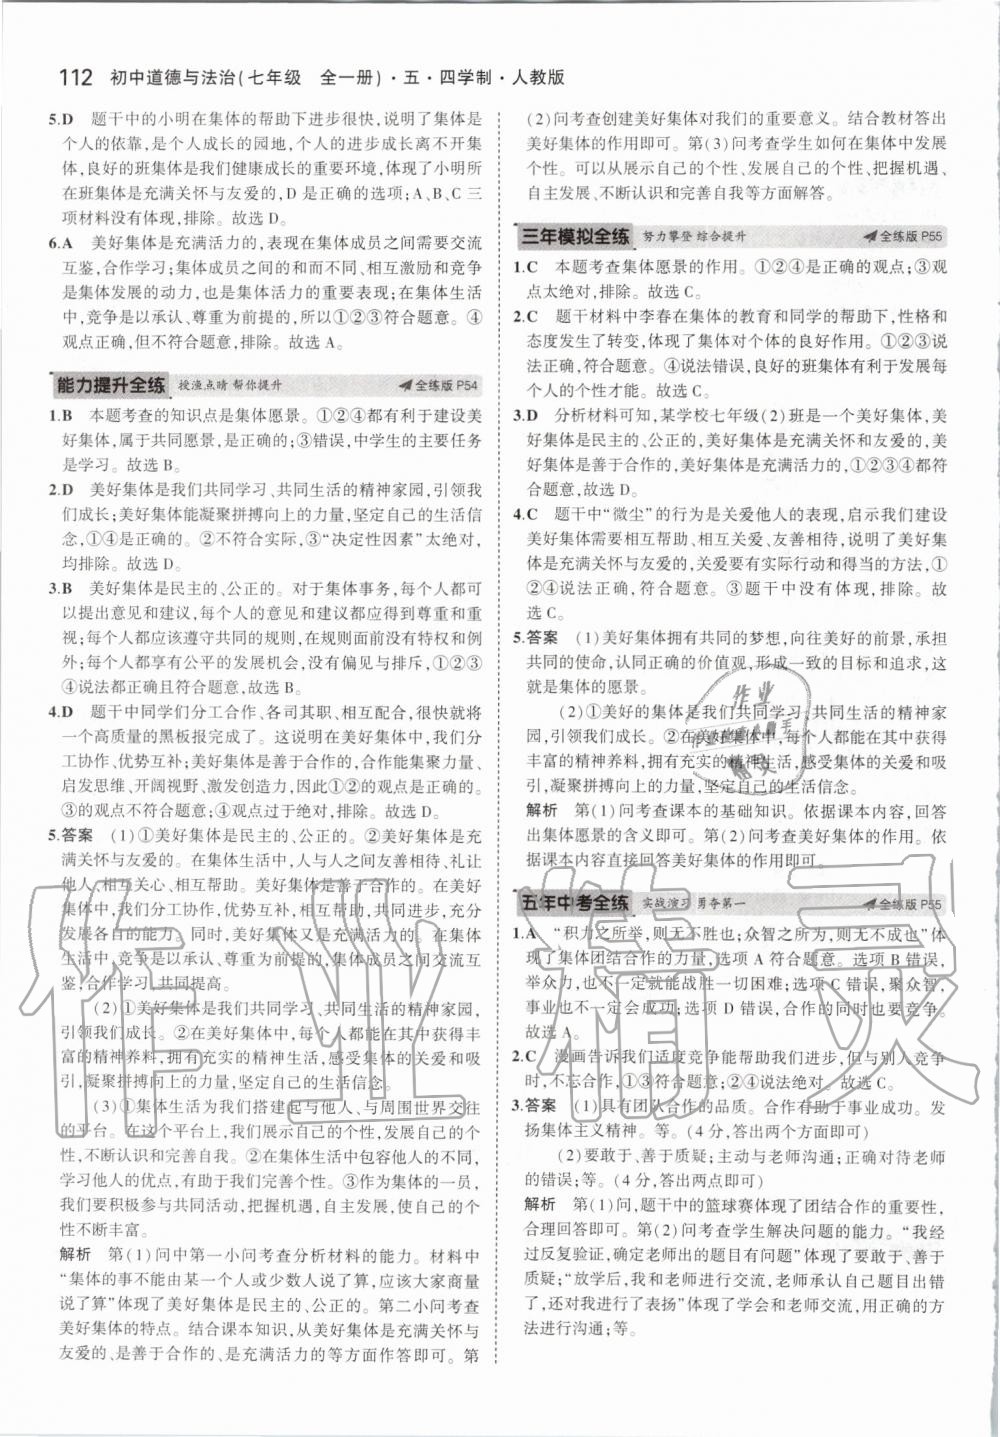 112 初中道德与法治(七年级 全一册)·五·四学制·人教版
5.D 题干中的小明在集体的帮助下进步很快,说明了集体是
个人的依靠,是个人成长的园地,个人的进步成长离不开集
体,良好的班集体是我们健康成长的重要环境,体现了小明所
在班集体是充满关怀与友爱的,D 是正确的选项;A、B、C 三
项材料没有体现,排除。故选 D。
6.A 美好集体是充满活力的,表现在集体成员之间需要交流
互鉴,合作学习;集体成员之间的和而不同、相互激励和竞争
是集体发展的动力,也是集体活力的重要表现;在集体生活
中,竞争是以承认、尊重为前提的,所以①②③符合题意。④
观点正确,但不符合题意,排除。故选 A。
能力提升全练 授渔点睛 帮你提升 全练版 P54
1.B 本题考查的知识点是集体愿景。①②④都有利于建设美
好集体,属于共同愿景,是正确的;③错误,中学生的主要任务
是学习。故选 B。
2.D 美好集体是我们共同学习、共同生活的精神家园,引领我
们成长;美好集体能凝聚拼搏向上的力量,坚定自己的生活信
念,①④是正确的。②不符合实际,③“决定性因素”太绝对,
均排除。故选 D。
3.B 美好集体是民主的、公正的。对于集体事务,每个人都可
以提出意见和建议,每个人的意见和建议都应得到尊重和重
视;每个人都应该遵守共同的规则,在规则面前没有特权和例
外;每个人都享有公平的发展机会,没有偏见与排斥,①②③
④说法都正确且符合题意,故选 B。
4.D 题干中同学们分工合作、各司其职、相互配合,很快就将
一个高质量的黑板报完成了。这说明在美好集体中,我们分
工协作,优势互补;美好集体是善于合作的,合作能集聚力量、
启发思维、开阔视野、激发创造力,因此①②的观点是正确的。
③的观点不符合题意,④观点过于绝对,排除。故选 D。
5.答案 (1)①美好集体是民主的、公正的。②美好集体是充
满关怀与友爱的。在集体生活中,人与人之间友善相待、礼让
他人,相互关心、相互帮助。美好集体是善于合作的。在美好
集体中,我们分工协作,优势互补,在相互帮助中共同成长,充分
发展各自的能力。同时,美好集体是充满活力的。在集体生活
中,竞争是以承认、尊重为前提的,集体成员之间需要交流互
鉴,合作学习,共同提高。
(2)美好集体是我们共同学习、共同生活的精神家园,
引领我们成长。在美好集体中,每个人都能在其中获得丰
富的精神养料,拥有充实的精神生活,感受集体的关爱和吸
引,凝聚拼搏向上的力量,坚定自己的生活信念。
(3)①集体生活为我们搭建起与他人、与周围世界交往
的平台。在这个平台上,我们展示自己的个性,发展个性,不
断认识和完善自我。②在集体生活中包容他人的不同,
学习他人的优点,有助于我们完善个性。③作为集体的一员,
我们要积极参与共同活动,主动发展自己,把握机遇,使自己的个
性不断丰富。
解析 第(1)问中第一小问考查分析材料的能力。材料中
“集体的事不能由某一个人或少数人说了算,应该大家商量
说了算”体现了美好集体是民主的、公正的。第二小问考查
美好集体的特点。结合课本知识,从美好集体是充满关怀与
友爱的、是善于合作的、是充满活力的等方面作答即可。第
(2)问考查创建美好集体对我们的重要意义。结合教材答出
美好集体的作用即可。第(3)问考查学生如何在集体中发展
个性。可以从展示自己的个性、发展自己的个性、把握机遇、
自主发展、不断认识和完善自我等方面解答。
三年模拟全练 努力攀登 综合提升 全练版 P55
1.C 本题考查集体愿景的作用。①②④是正确的观点;③观
点太绝对,排除。故选 C。
2.C 题干材料中李春在集体的教育和同学的帮助下,性格和
态度发生了转变,体现了集体对个体的良好作用。①②③说
法正确,符合题意;④说法错误,良好的班集体有利于发展每
个人的个性才能。故选 C。
3.D 分析材料可知,某学校七年级(2)班是一个美好集体,美
好集体是民主的、公正的,美好集体是充满关怀和友爱的,美
好集体是善于合作的,美好集体是充满活力的,①②③④都符
合题意,故选 D。
4.C 题干中“微尘”的行为是关爱他人的表现,启示我们建设
美好集体需要相互帮助、相互关爱、友善相待,说明了美好集
体是充满关怀与友爱的,关爱要有实际行动和得当的方法,①
②④说法正确,符合题意。③题干中没有体现,排除。故
选 C。
5.答案 (1)美好集体拥有共同的梦想,向往美好的前景,承担
共同的使命,认同正确的价值观,形成一致的目标和追求,这
就是集体的愿景。
(2)①美好的集体是我们共同学习、共同生活的精神家
园,引领我们成长。②在美好集体中,每个人都能在其中获得
丰富的精神养料,拥有充实的精神生活,感受集体的关爱和吸
引,凝聚拼搏向上的力量,坚定自己的生活信念。
解析 第(1)问考查课本的基础知识。依据课本内容,回答
出集体愿景的含义即可。第(2)问考查美好集体的作用。依
据课本内容直接回答美好集体的作用即可。
五年中考全练 实战演习 勇夺第一 全练版 P55
1.A “积力之所举,则无不胜也;众智之所为,则无不成也”体
现了集体团结合作的力量,选项 A 符合题意。选项 B 错误,
举众力,也不一定就能战胜一切困难;选项 C 错误,聚众智,
事业也不一定会成功;选项 D 错误,合作的同时也要竞争。
故选 A。
2.C 漫画告诉我们适度竞争能帮助我们进步,但与别人竞争
时,不忘合作,①③符合题意;②④与题意不符。故选 C。
3.答案 (1)具有团队合作的品质。合作有助于事业成功。发
扬集体主义精神。等。(4 分,答出两个方面即可)
(2)要敢于、善于质疑;主动与老师沟通;正确对待老师
的错误;等。(4 分,答出两点即可)
解析 第(1)问,题干中的篮球赛体现了团结合作的重要性,
合理回答即可。第(2)问考查学生解决问题的能力。“我经
过反复验证,确定老师出的题目有问题”体现了要敢于、善于
质疑;“放学后,我和老师进行了交流,老师承认自己题目出错
了,还对我进行了表扬”体现了学会和老师交流,用正确的方
法进行沟通;等。
作业精灵